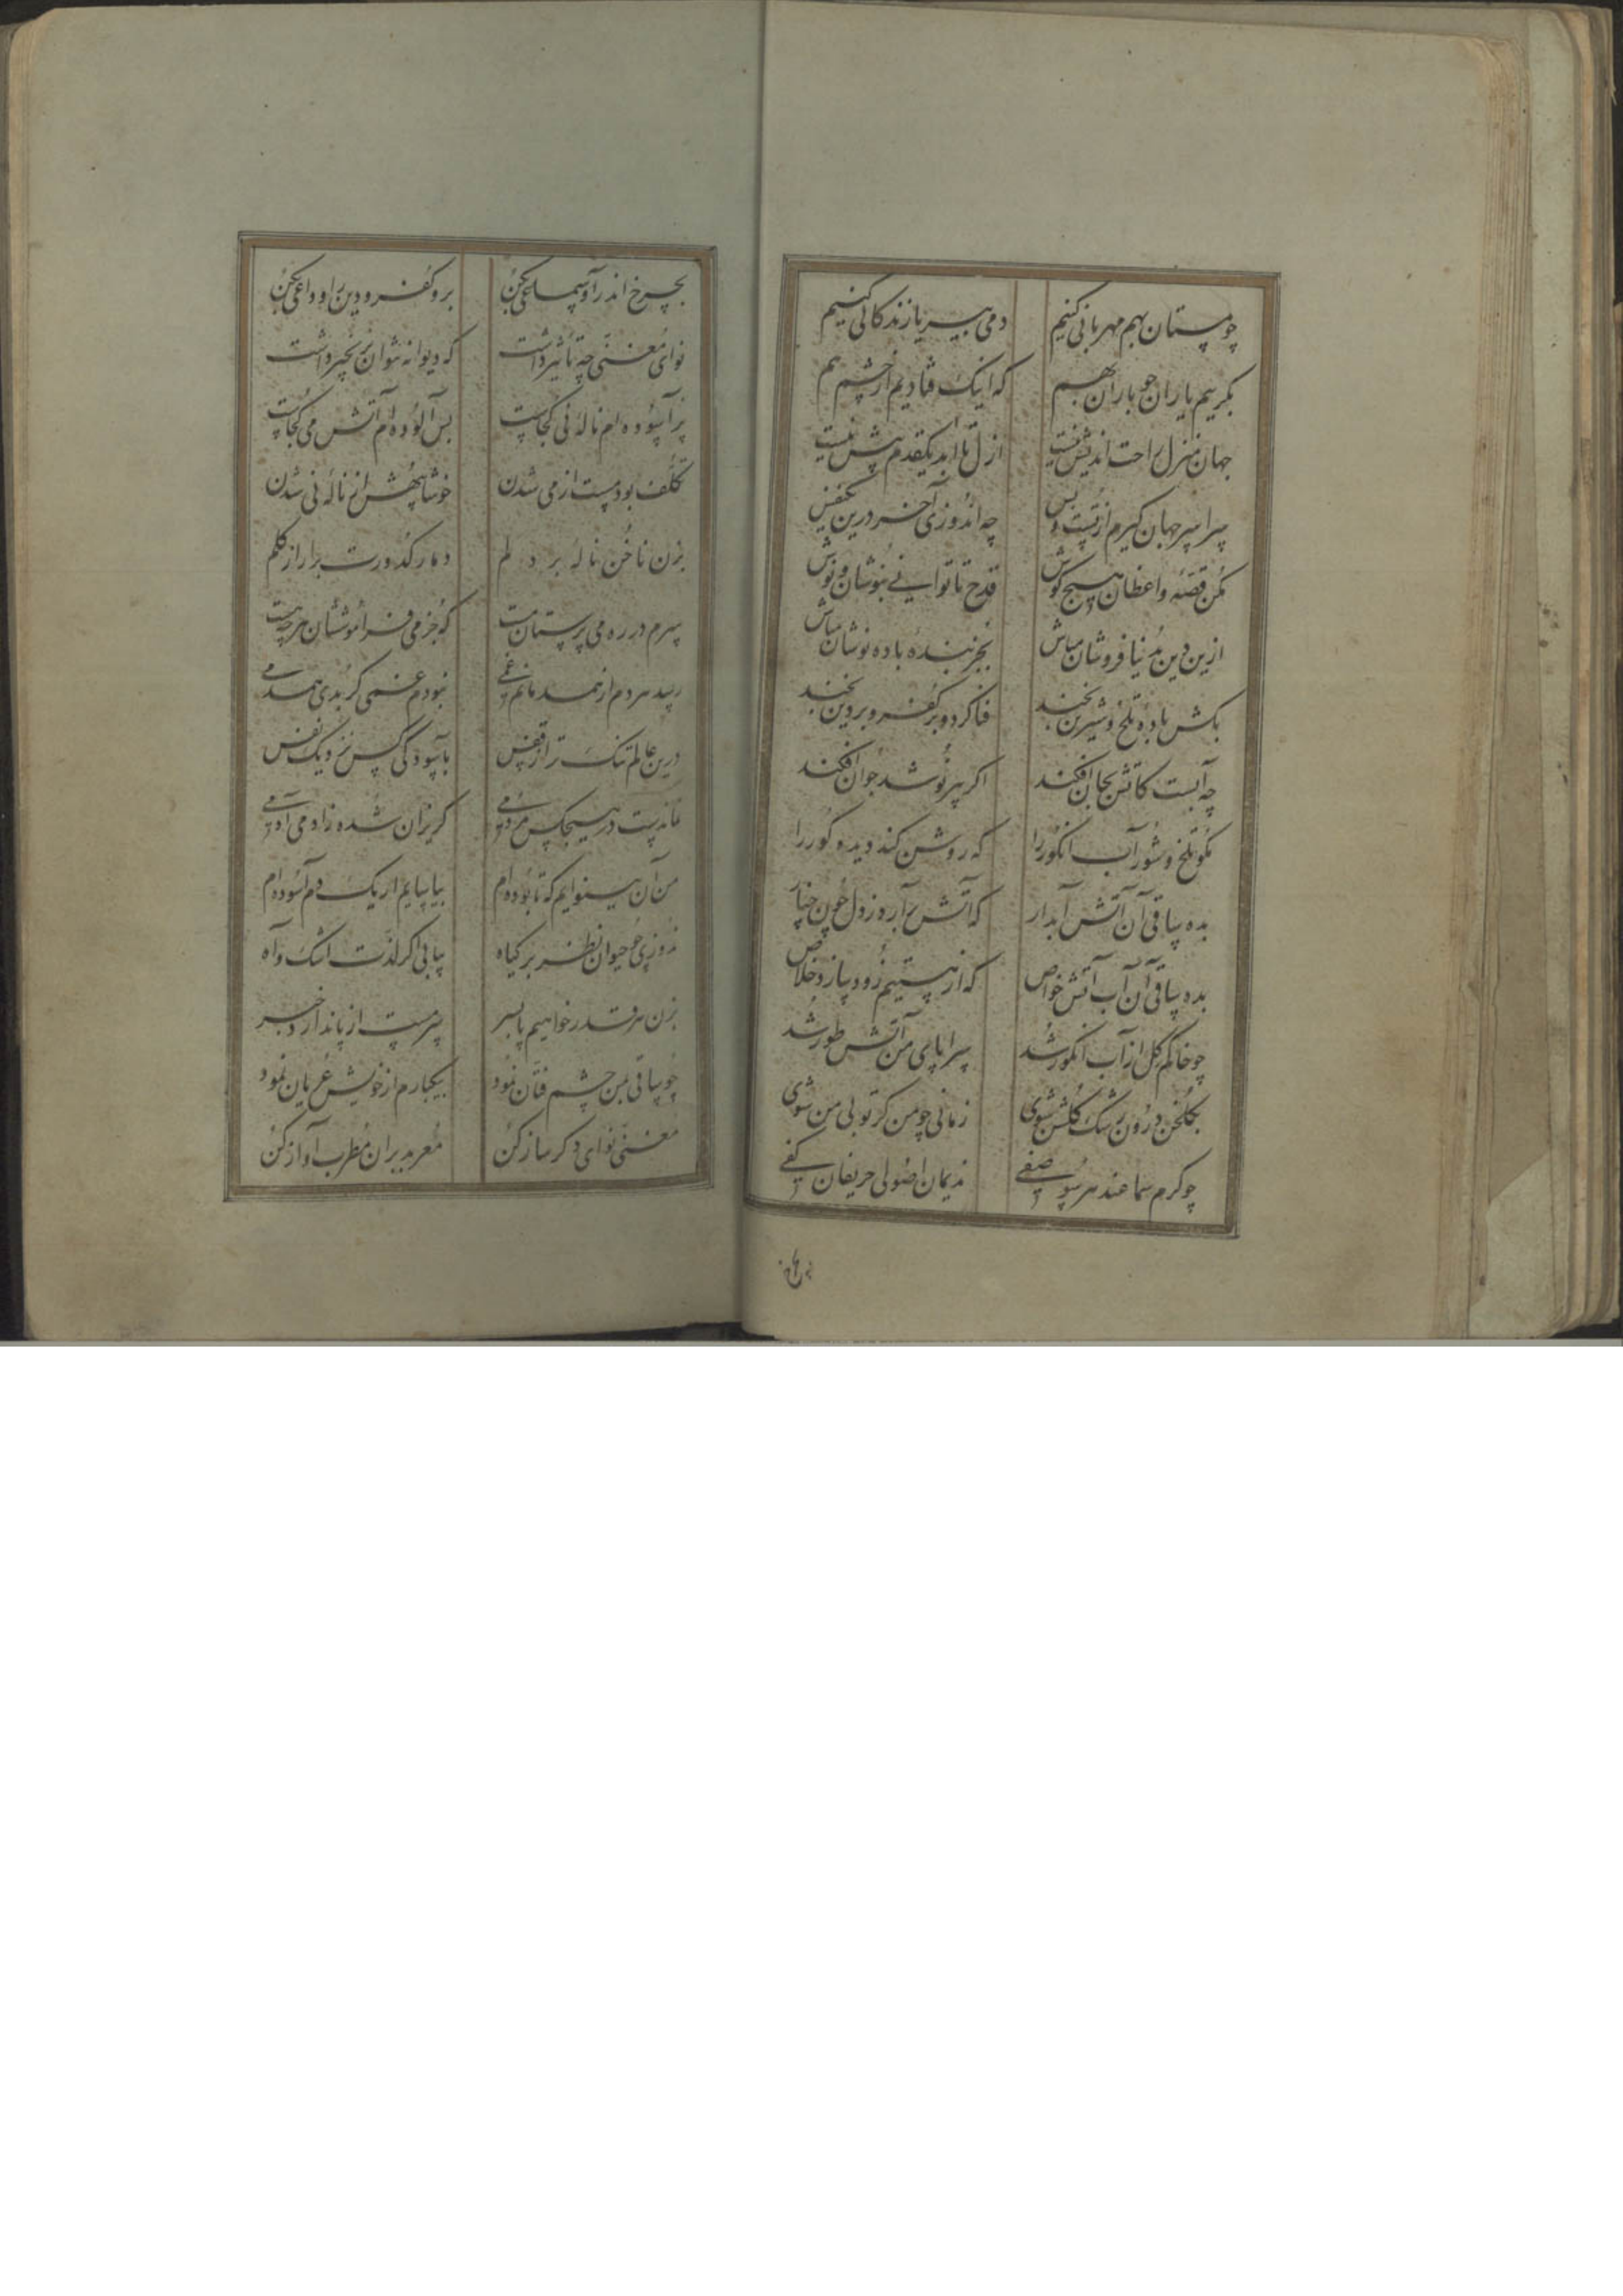 چو مستان بهم مهربانی کنیم دمی بی‌ریا زندگانی کنیم
بگرییم یاران چو باران بهم که اینک فتادیم از چشم هم
جهان منزل راحت اندیش نیست ازل تا ابد یکقدم پیش نیست
سراسر جهان گیرم از تست و بس چه اندوزی آخر درین یکنفس
مکن قصه واعظان هیچ گوش قدح تا توانی بنوشان و نوش
ازین دین بدنیا فروشان مباش بجز بنده باده نوشان مباش
بکش باده تلخ و شیرین بخند فنا گرد و بر کفر و بر دین بخند
چه آبست کاتش بجان افکند اگر پیر نوشد جوان افکند
مگو تلخ و شور آب انگور را که روشن کند دیده کور را
بده ساقی آن آتش آبدار که آتش برآرد ز دل چون چنار
بده ساقی آن آب آتش خواص که از هستیم زود سازد خلاص
چو خاکم گل از آب انگور شد سراپای من آتش طور شد
بگلخن درون رشک گلشن شوی زمانی چو من گر تو بی من شوی
چو گرم سماعند هر سو صفی ندیمان اصولی حریفان کفی
بچرخ اندر آ و سماعی بکن برو کفر و دین را وداعی بکن
نوای مغنی چه تأثیر داشت که دیوانه نتوان بزنجیر داشت
پر آسوده‌ام ناله نی کجاست بس آلوده‌ام آتش می کجاست
تکلف بود مست از می شدن خوشا بیهش از ناله نی شدن
بزن ناخن ناله بر دلم دمار کدورت برار از گلم
سرم در ره می پرستان مست کو جز می فراموششان هر چه هست
رسد هر دم از همدمانم غمی نبودم غمی گر بدی همدمی
درین عالم تنگ‌تر از قفس بآسودگی کس نزد یک نفس
نماندست در هیچکس مردمی گریزان شده زآدمی آدمی
من آن بینوایم که تا بوده‌ام بیاسایم ار یکدم آسوده‌ام
ندوزی چو حیوان نظر بر گیاه بیابی اگر لذت اشک و آه
بزن هر قدر خواهیم پا بسر سرمست از پا ندارد خبر
چو ساقی بمن چشم فتان نمود بیکبارم از خویش عریان نمود
مغنی نوای دگر ساز کن